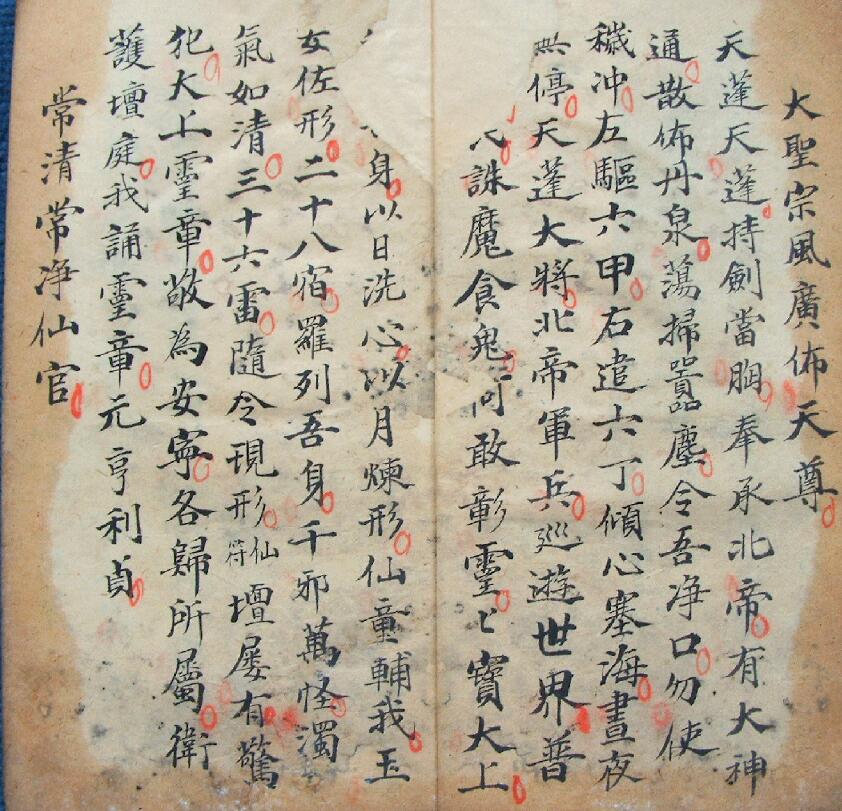 大聖宗風廣佈天尊
天蓬天蓬持劍當胸奉承北帝有大神
通散佈丹泉蕩掃囂塵令吾净口勿使
穢冲左驅六甲右遣六丁傾心塞海晝夜
停天蓬大將北帝軍兵廵遊世界普
誅魔食鬼何敢彰靈〻寶大上
身以日洗心以月煉形仙童輔我玉
女佐形二十八宿羅列吾身千邪萬怪濁
氣如清三十六雷隨令現形仙符壇屡有驚
犯大上靈章敬為安寧各歸所屬衛
護壇庭我誦靈章元亨利貞
常清常净仙官